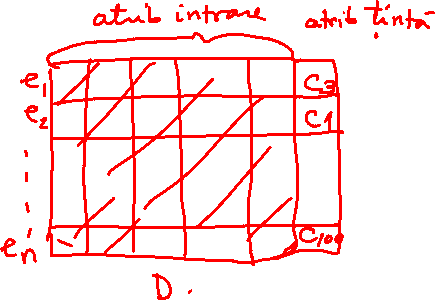 atrib intrare atrib țintă
e1 C3
e2 C1
en C100
D.